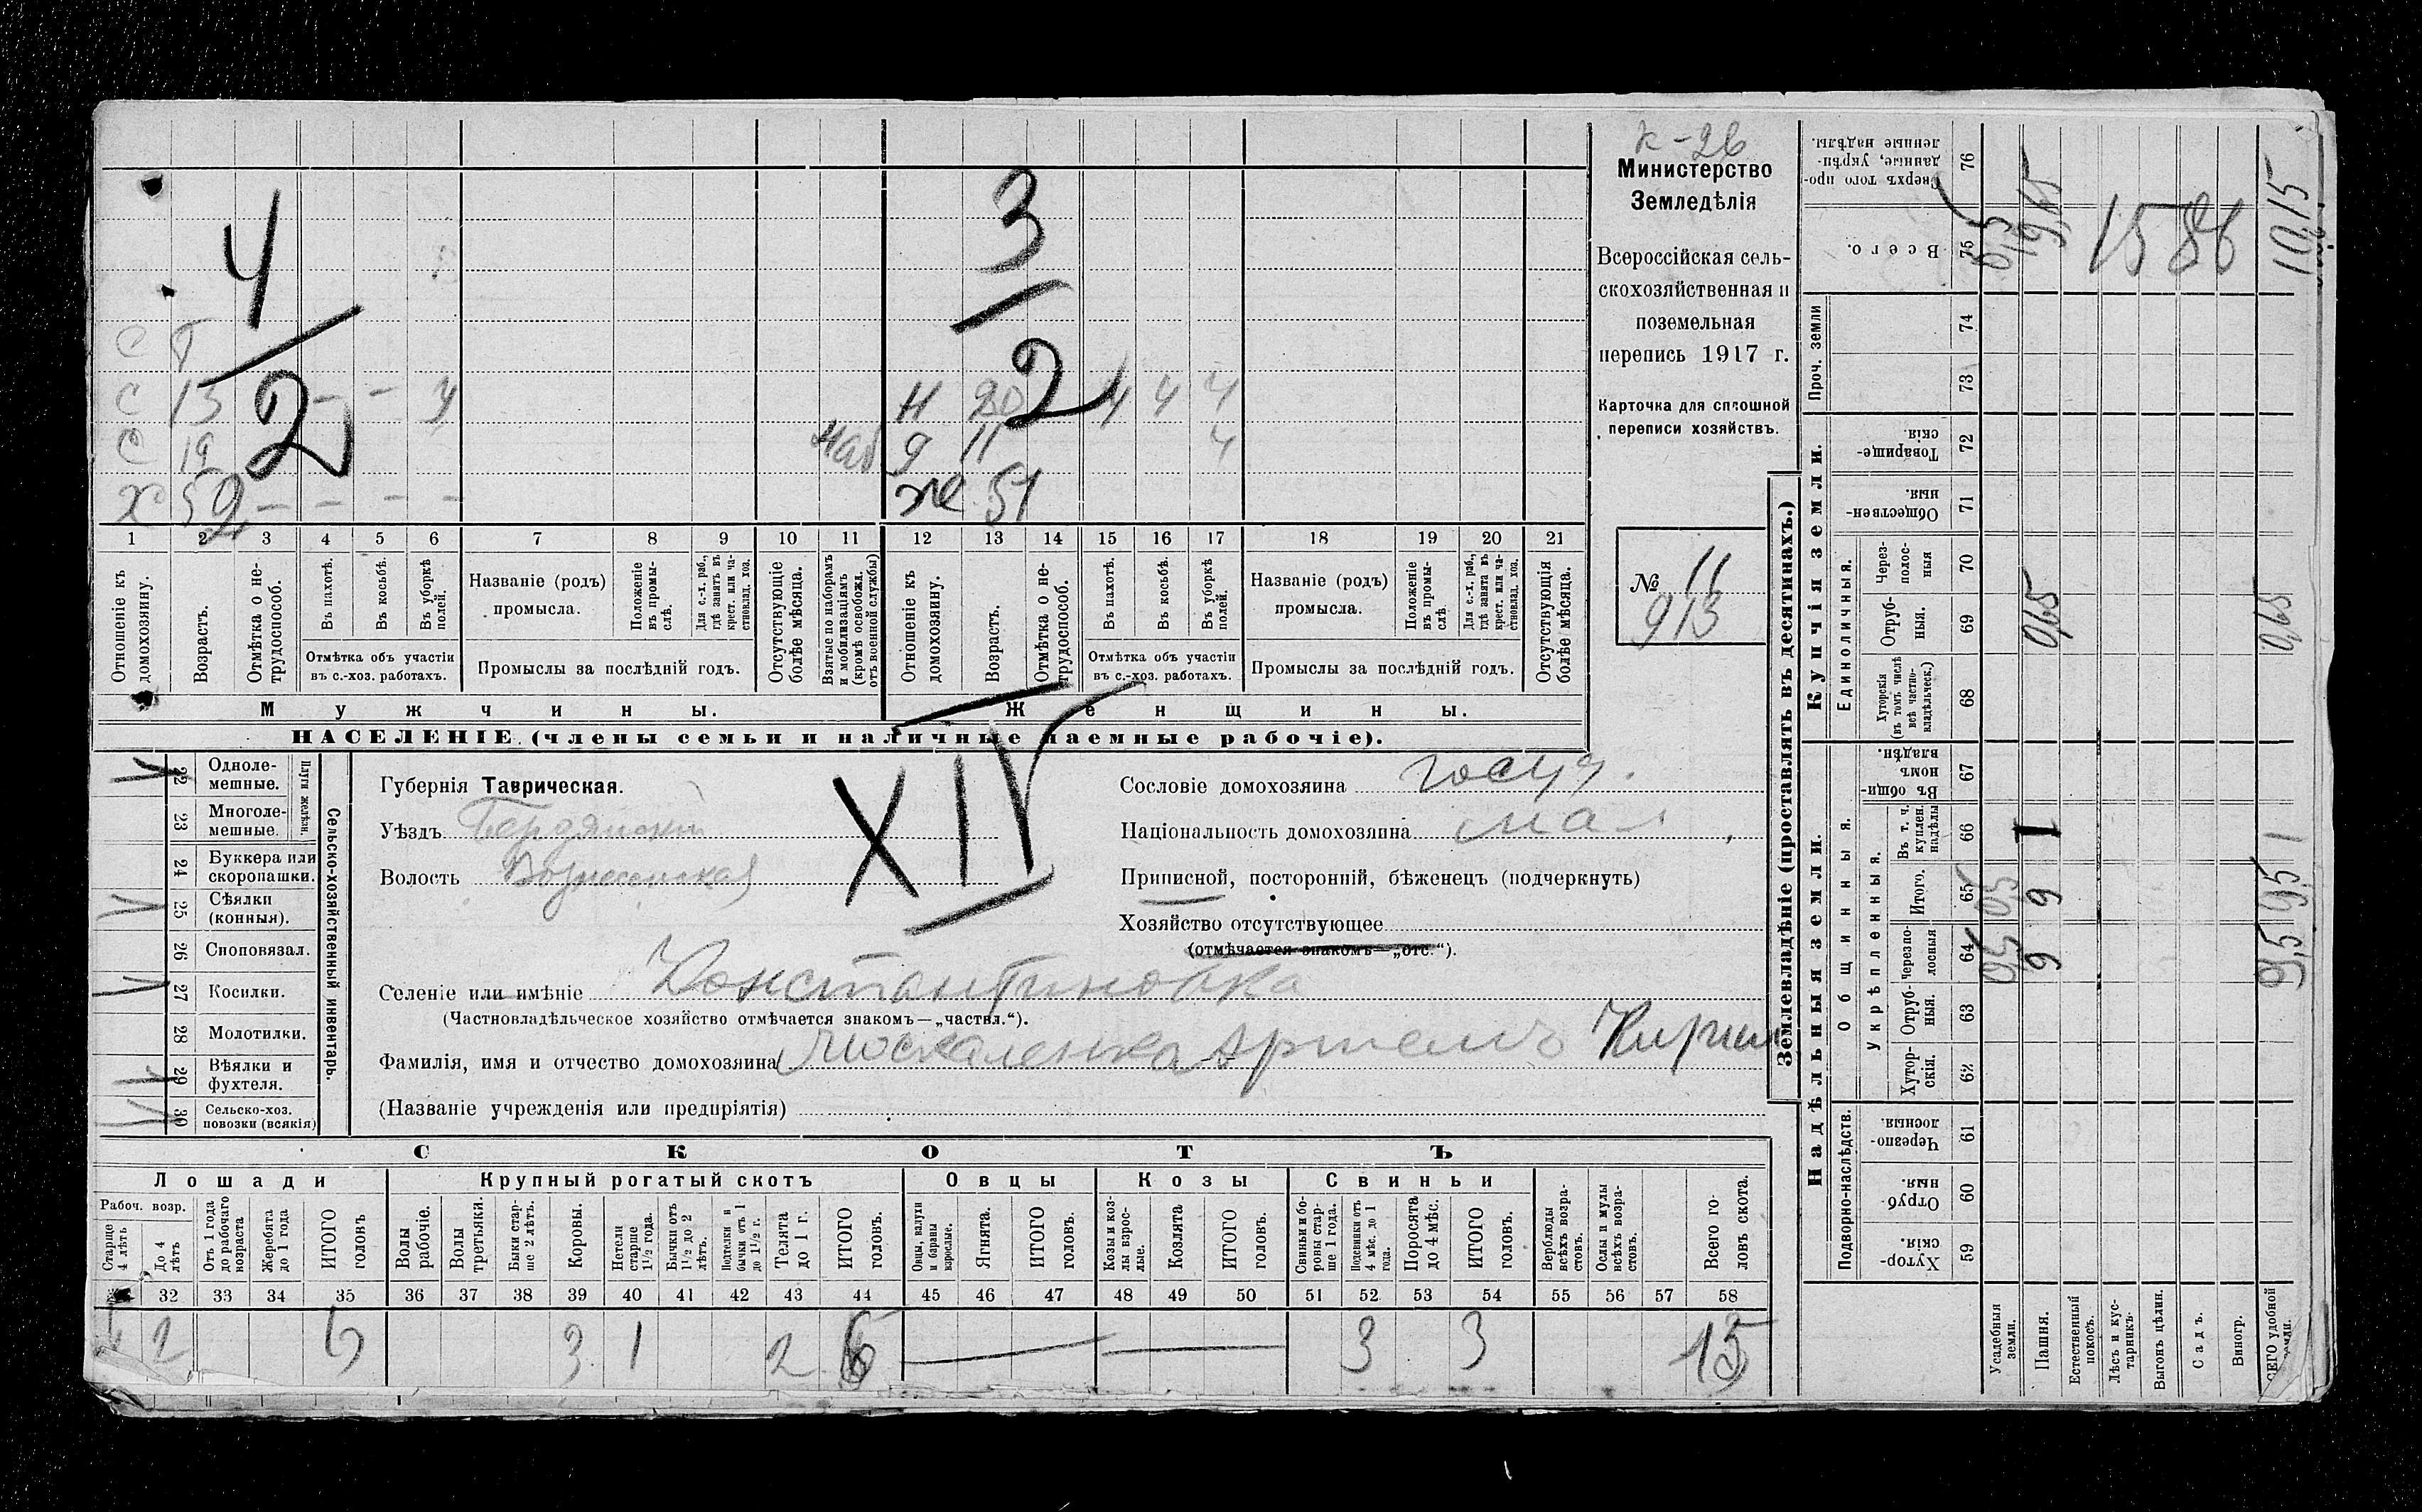 к-26
Министерство
Земледѣлія
Всероссійская сель-
скохозяйственная и
поземельная
перепись 1917 г.
Карточка для сплошной
переписи хозяйствъ.
№ 11
913
4
2
3
2
С
С 13 - - ч
С 19
Х 59 - - - -
Н 20 ч ч ч
наб д 11 ч
же 51
1 2 3 4 5 6 7 8 9 10 11 12 13 14 15 16 17 18 19 20 21
Отношеніе къ домохозяину.
Возрастъ.
Отмѣтка о не-трудоспособ.
Въ пахотѣ.
Въ косьбѣ.
Въ уборкѣ полей.
Отмѣтка объ участіи въ с.-хоз. работахъ.
Названіе (родъ) промысла.
Положеніе въ промы-слѣ.
Для с.-х. раб., гдѣ занятъ въ крест. или ча-стновлад. хоз.
Промыслы за послѣдній годъ.
Отсутствующіе болѣе мѣсяца.
Взятые по наборамъ и мобилизаціямъ (кромѣ освобожд. отъ военной службы)
Отношеніе къ домохозяину.
Возрастъ.
Отмѣтка о не-трудоспособ.
Въ пахотѣ.
Въ косьбѣ.
Въ уборкѣ полей.
Отмѣтка объ участіи въ с.-хоз. работахъ.
Названіе (родъ) промысла.
Положеніе въ промы-слѣ
Для с.-х. раб., гдѣ занята въ крест. или ча-стновлад. хоз.
Промыслы за послѣдній годъ.
Отсутствующія болѣе мѣсяца.
Мужчины.
Женщины.
НАСЕЛЕНІЕ (члены семьи и наличные наемные рабочіе).
XIV
Сельско-хозяйственный инвентарь.
Плуги желѣзн.
22 Одноле-мешные.
23 Многоле-мешные.
24 Буккера или скоропашки.
25 Сѣялки (конныя).
26 Сноповязал.
27 Косилки.
28 Молотилки.
29 Вѣялки и фухтеля.
30 Сельско-хоз. повозки (всякія)
Губернія Таврическая.
Уѣздъ Бердянскій
Волость Вознесенская
Сословіе домохозяина госуд.
Національность домохозяина мал
Приписной, посторонній, бѣженецъ (подчеркнуть)
Хозяйство отсутствующее
(отмѣчается знакомъ—„отс.“).
Селеніе или имѣніе Константиновка
(Частновладѣльческое хозяйство отмѣчается знакомъ—„частвл.“).
Фамилія, имя и отчество домохозяина Москаленка Артемъ Кирил
(Названіе учрежденія или предпріятія)
СКОТЪ
Лошади
Крупный рогатый скотъ
Овцы
Козы
Свиньи
Рабоч. возр.
Старше 4 лѣтъ
До 4 лѣтъ
Отъ 1 года до рабочаго возраста
Жеребята до 1 года
ИТОГО головъ
Волы рабочіе.
Волы третьяки.
Быки стар-ше 2 лѣтъ.
Коровы.
Нетели старше 1½ года.
Бычки отъ 1½ до 2 лѣтъ.
Подтелки и бычки отъ 1 до 1½ г.
Телята до 1 г.
ИТОГО головъ.
Овцы, валухи и бараны взрослые.
Ягнята.
ИТОГО головъ.
Козы и коз-лы взрос-лые.
Козлята
ИТОГО головъ.
Свиньи и бо-ровы стар-ше 1 года.
Подсвинки отъ 4 мѣс. до 1 года.
Поросята до 4 мѣс.
ИТОГО головъ.
Верблюды всѣхъ возра-стовъ.
Ослы и мулы всѣхъ возра-стовъ.
Всего го-ловъ скота.
32 33 34 35 36 37 38 39 40 41 42 43 44 45 46 47 48 49 50 51 52 53 54 55 56 57 58
4 2 6 3 1 2 6 3 3 15
Землевладѣніе (проставлять въ десятинахъ.)
Надѣльныя земли.
Купчія земли.
Проч. земли
Подворно-наслѣдств.
Общинныя.
Укрѣпленныя.
Единоличныя.
59 Хутор-скія.
60 Отруб-ныя.
61 Черезпо-лосныя.
62 Хутор-скія.
63 Отруб-ныя.
64 Черезпо-лосныя
65 Итого.
66 Въ т. ч. куплен. надѣлы
67 Въ общи-номъ владѣн.
68 Хуторскія (въ томъ числѣ всѣ частно-владѣльческ.)
69 Отруб-ныя.
70 Через-полос-ныя
71 Обществен-ныя.
72 Товарище-скія.
73
74
75 Всего.
76 Сверхъ того про-данные, укрѣп-ленные надѣлы.
Усадебныя земли.
Пашня.
Естественный покосъ.
Лѣсъ и кус-тарникъ.
Выгонъ цѣлин.
Садъ.
Виногр.
0,5 0,5 0,5
9 9 1 0,65 9,65
15 86
9,5 9,5 1 0,65 10,15